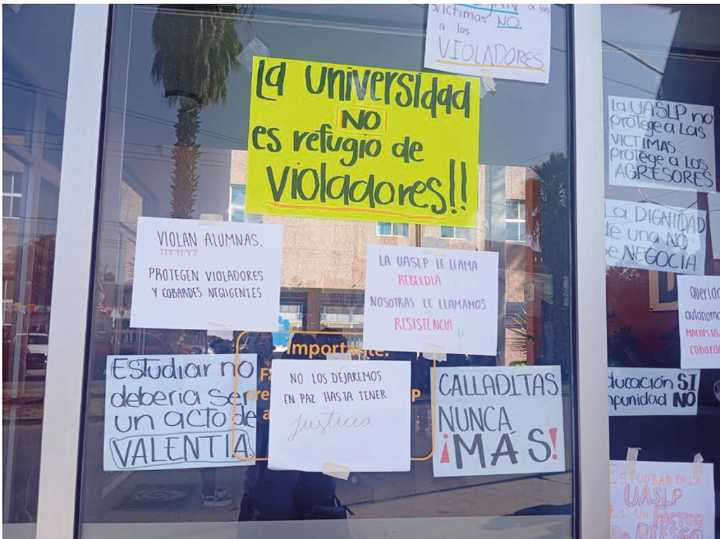 víctimas NO
a los
VIOLADORES
La universidad
NO
es refugio de
violadores!!
VIOLAN ALUMNAS.
PROTEGEN VIOLADORES
Y COBARDES NEGLIGENTES
LA UASLP LE LLAMA
REBELDIA
NOSOTRAS LE LLAMAMOS
RESISTENCIA!!
Importante:
Estudiar no
deberia ser
un acto de
VALENTIA
NO LOS DEJAREMOS
EN PAZ HASTA TENER
Justicia
CALLADITAS
NUNCA
¡MÁS!
La UASLP no
protege a LAS
VICTIMAS
protege a los
AGRESORES
La DIGNIDAD
de una NO
se NEGOCIA
Querida
EDUCACIÓN SI
impunidad NO
ESTUDIAR EN LA
UASLP